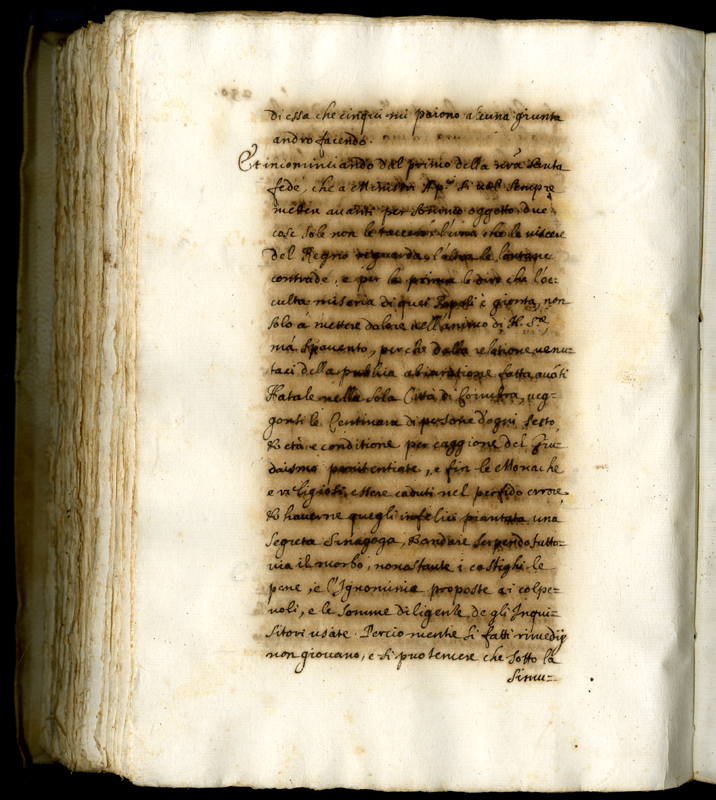 di essa che cinque mi paiono alcuna giunta
andrò facendo.
Et incominciando dal primo della nrã Santa
fede, che a Ministri App.ci si deb sempre
metter auanti per sommo oggetto, due
cose sole non le tacerò, l'una che le viscere
del Regno riguarda, l'altra le lontane
contrade, e per la prima le dirò che l'oc=
culta miseria di quei Popoli è gionta, non
solo à mettere dolore nell'animo di N. S.re
mà spauento, perche dalla relatione uenu=
taci della publica abiuratione fatta auãti
Natale nella sola Città di Coimbra, ueg=
gonsi le Centinara di persone d'ogni sesto,
& età e conditione per caggione del Giu=
daismo penitentiate, e fin le Monache
e religiosi, essere caduti nel perfido errore,
& hauerne quegli infelici piantata una
segreta Sinagoga, & andare serpendo tutto=
uia il morbo, nonostante i castighi le
pene, e l'Ignominie proposte a i colpe=
uoli, e le somme diligenze de gli Inqui=
sitori usate. Perciò mentre si fatti rimedij
non giouano, e si può temere che sotto la
simu=